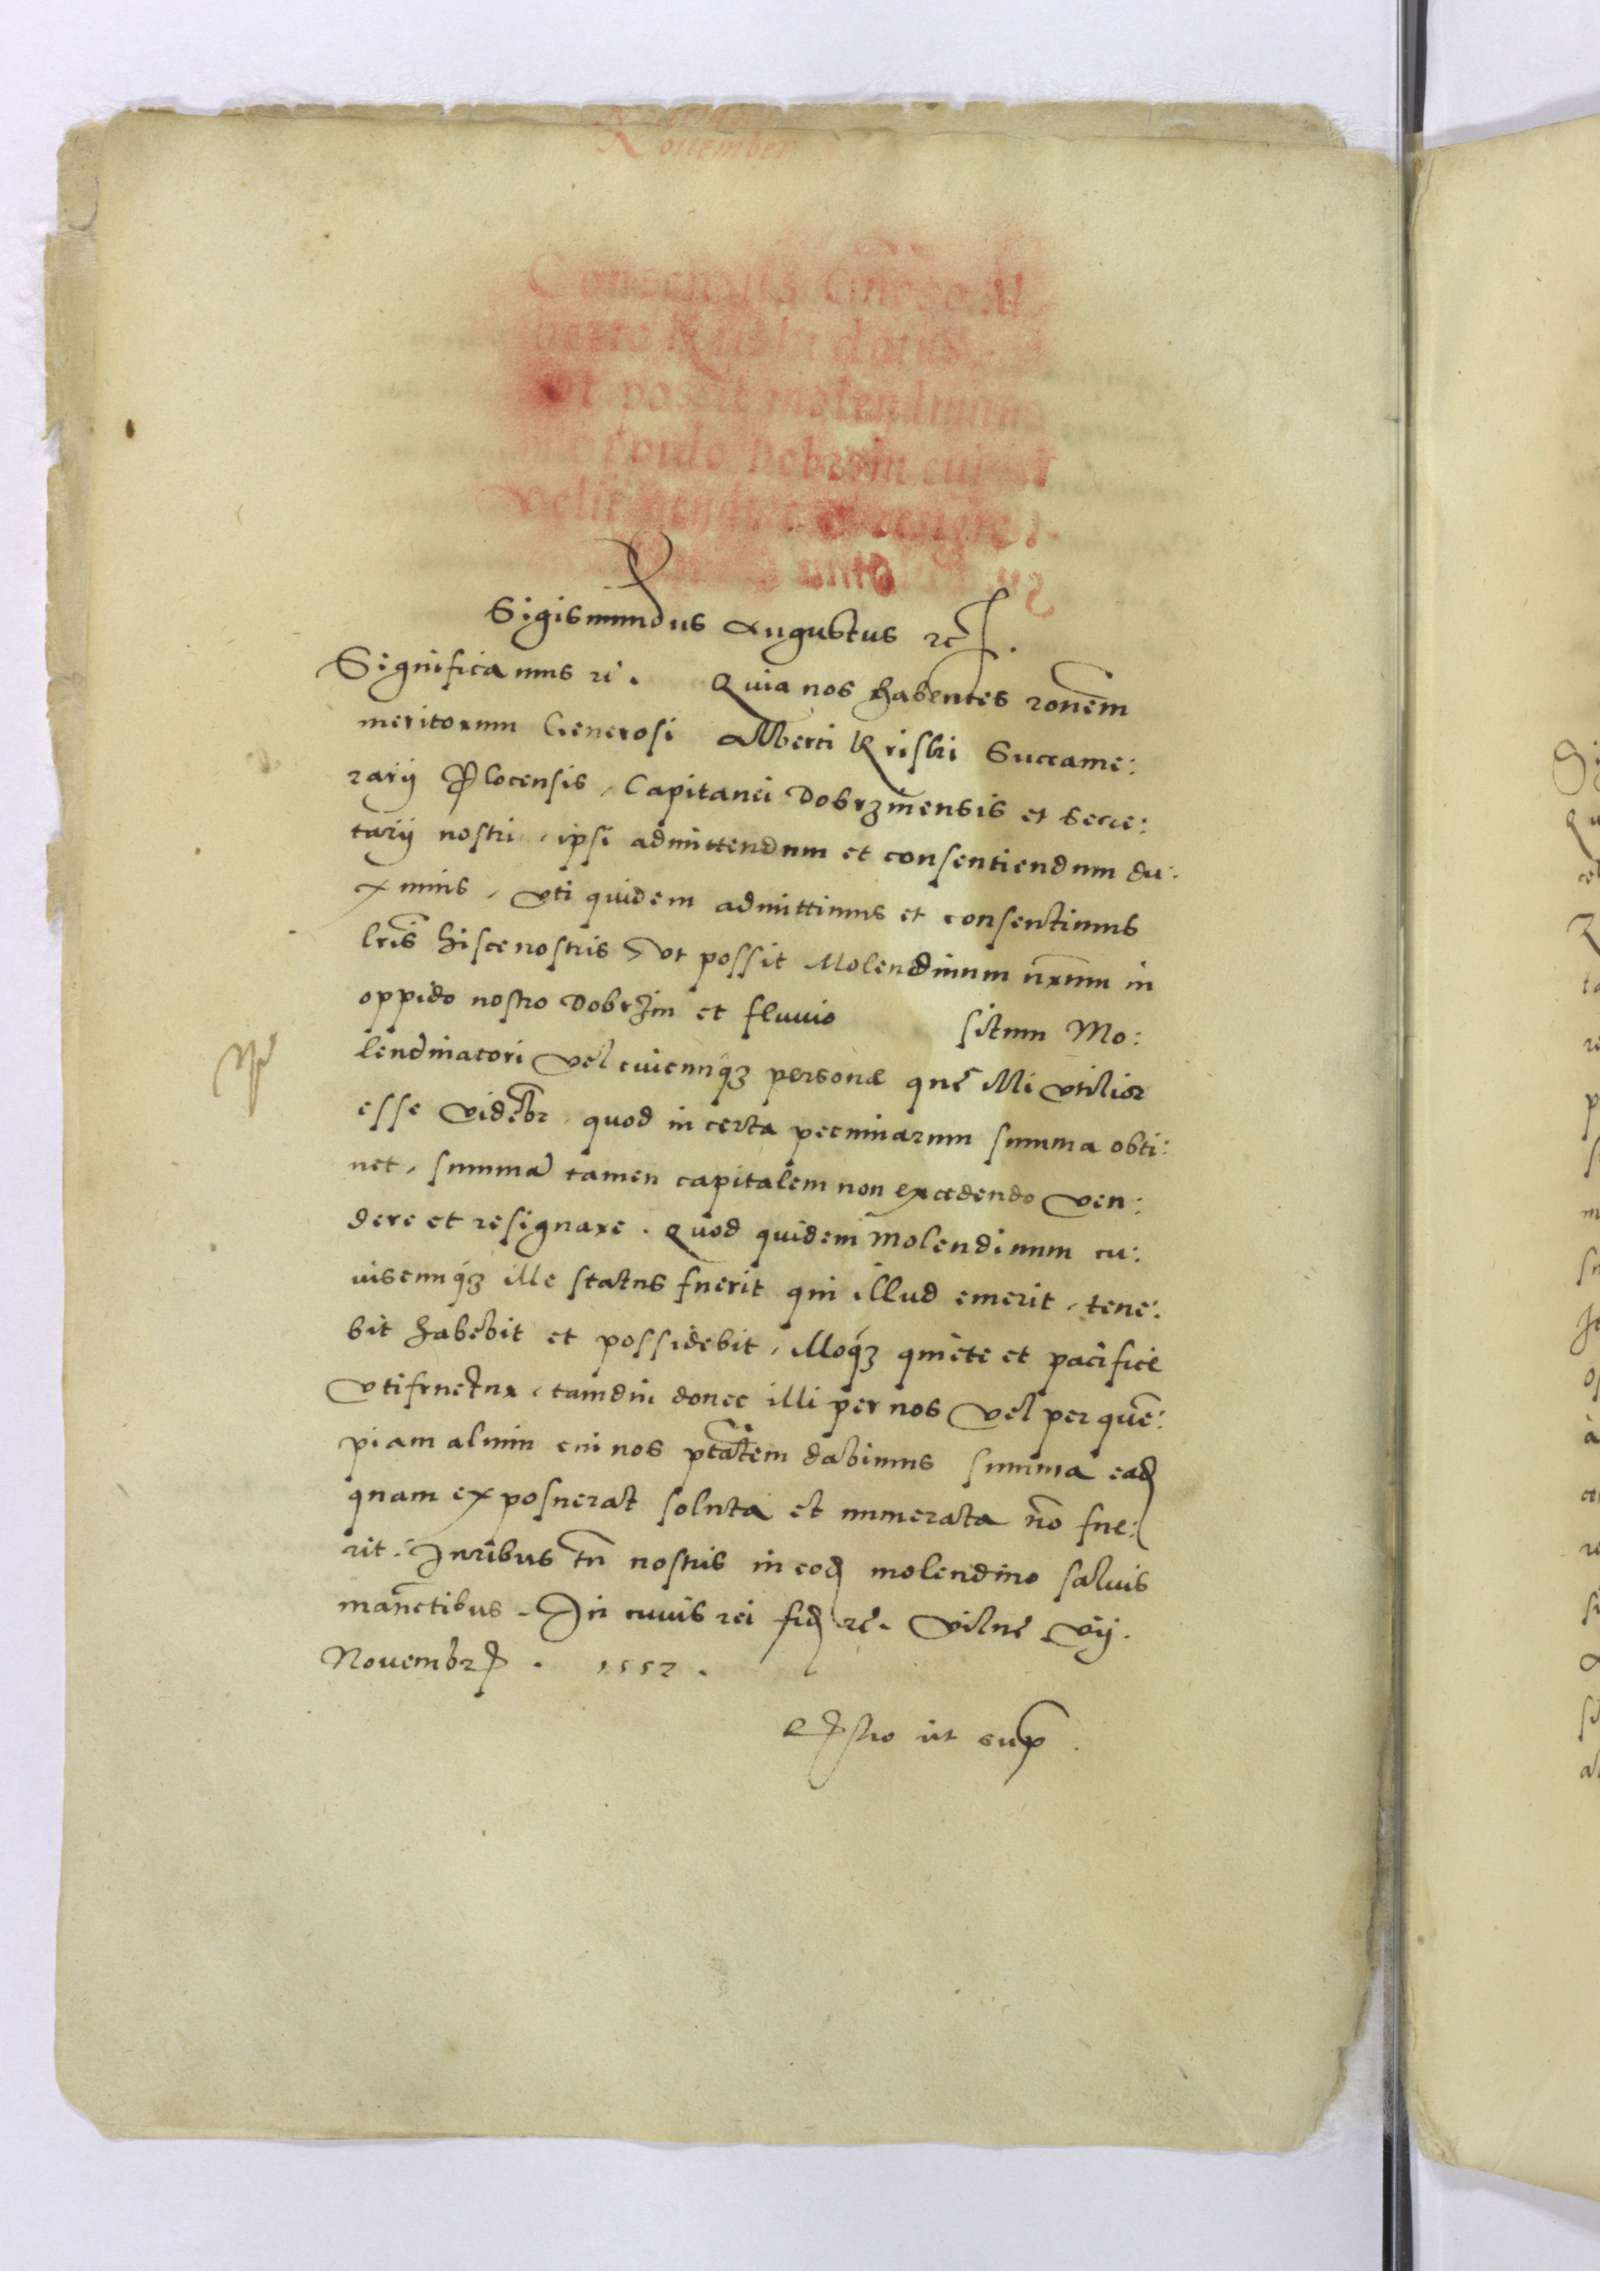 Nouember
Consensus Gnoso Al
berto Kriski datus
Vt possit molendinum
in oppido Dobrzin cui
velit vendere et resignare
Sigismundus Augustus rc.
Significamus rc. Quia nos habentes rönem
meritorum Generosi Alberti Kriski Succame:
rarij Plocensis, Capitanei Dobrzinensis et Secre:
tarij nostri, ipsi admittendum et consentiendum du:
ximus, Vti quidem admittimus et consentimus
lr̄is hisce nostris, Vt possit Molendinum nr̄um in
oppido nostro Dobrzin et fluuio situm Mo:
lendinatori Vel cuicumq3 personæ quę illi vtilior
esse videbr̄, quod in certa pecuniarum summa obti:
net, summā tamen capitalem non excedendo Ven:
dere et resignare. Quod quidem Molendinum cu:
iuscumq3 ille status fuerit qui illud emerit, tene:
bit habebit et possidebit, Illoq3 quiete et pacifice
Vtifruetur, tamdiu donec illi per nos Vel per quē:
piam alium cui nos p̄tātem dabimus summa ead
quam exposuerat soluta et numerata nō fue:
rit. Iuribus tn̄ nostris in eod molendino saluis
manētibus. In cuius rei fid rc. Vilnę Vij.
Nouembr. 1552.
ut sup